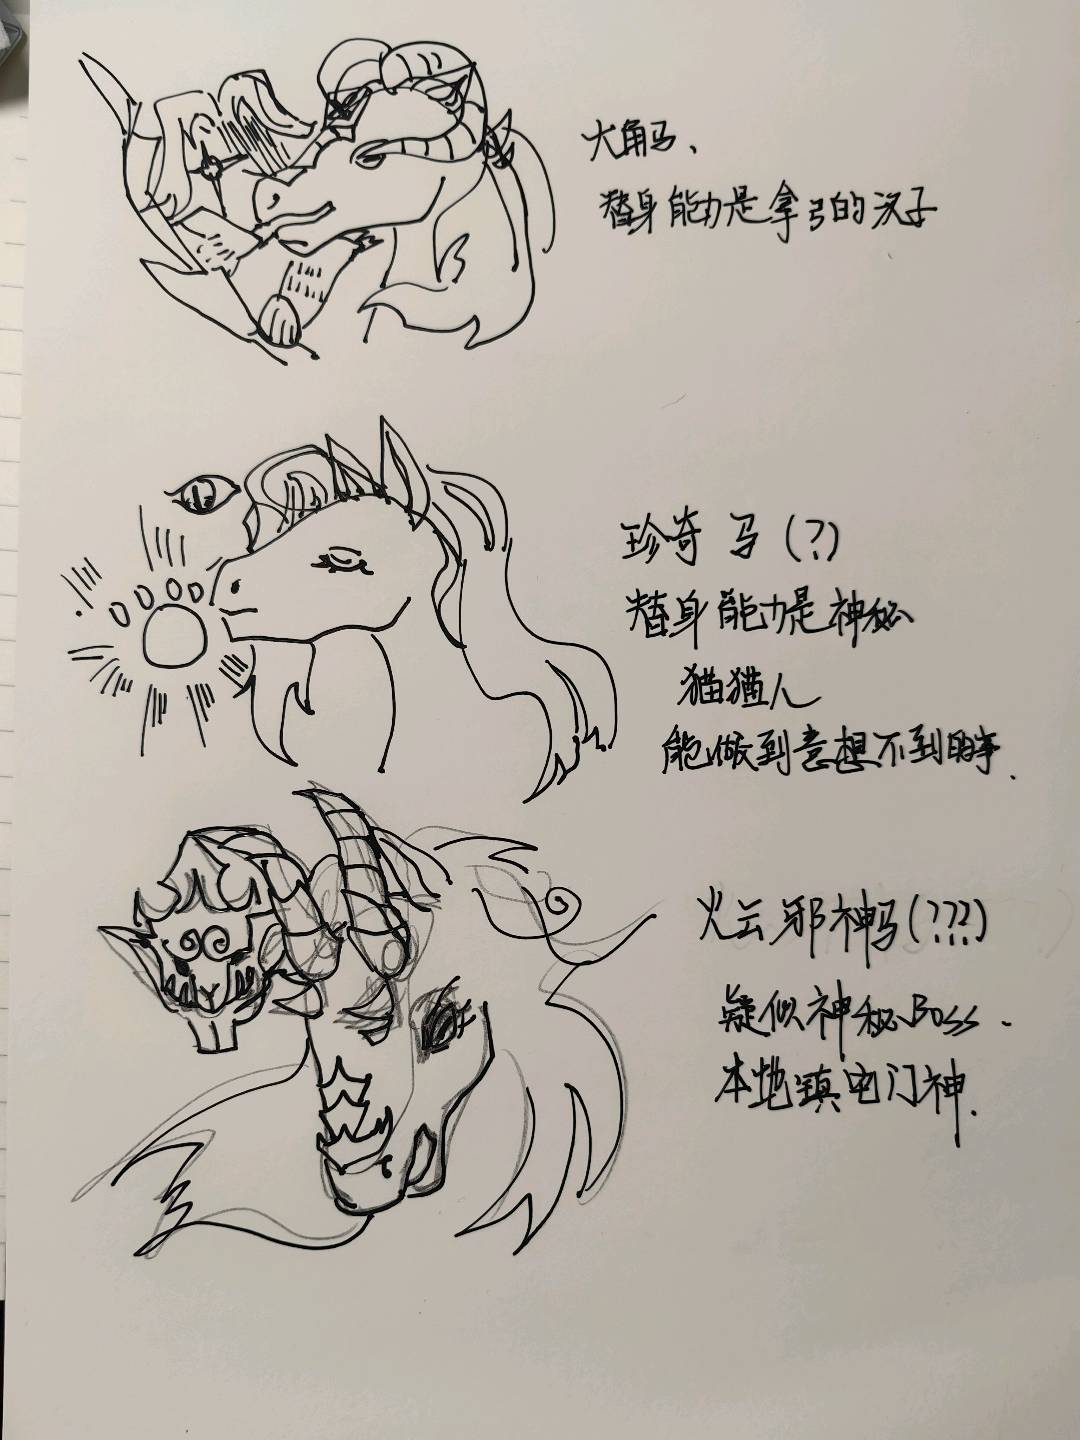 大角马、
替身能力是拿弓的汉子
珍奇马(?)
替身能力是神秘
猫猫人
能做到意想不到的事.
火云邪神马(???)
疑似神秘Boss.
本地镇宅门神.